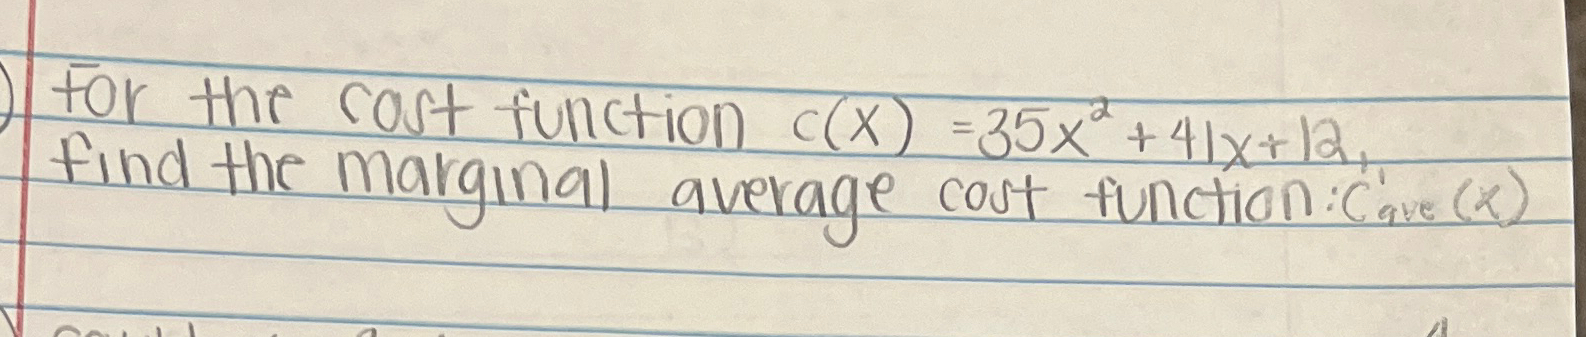 ) For the cost function c(x) = 35x² + 41x + 12,
find the marginal average cost function: C'ave (x)